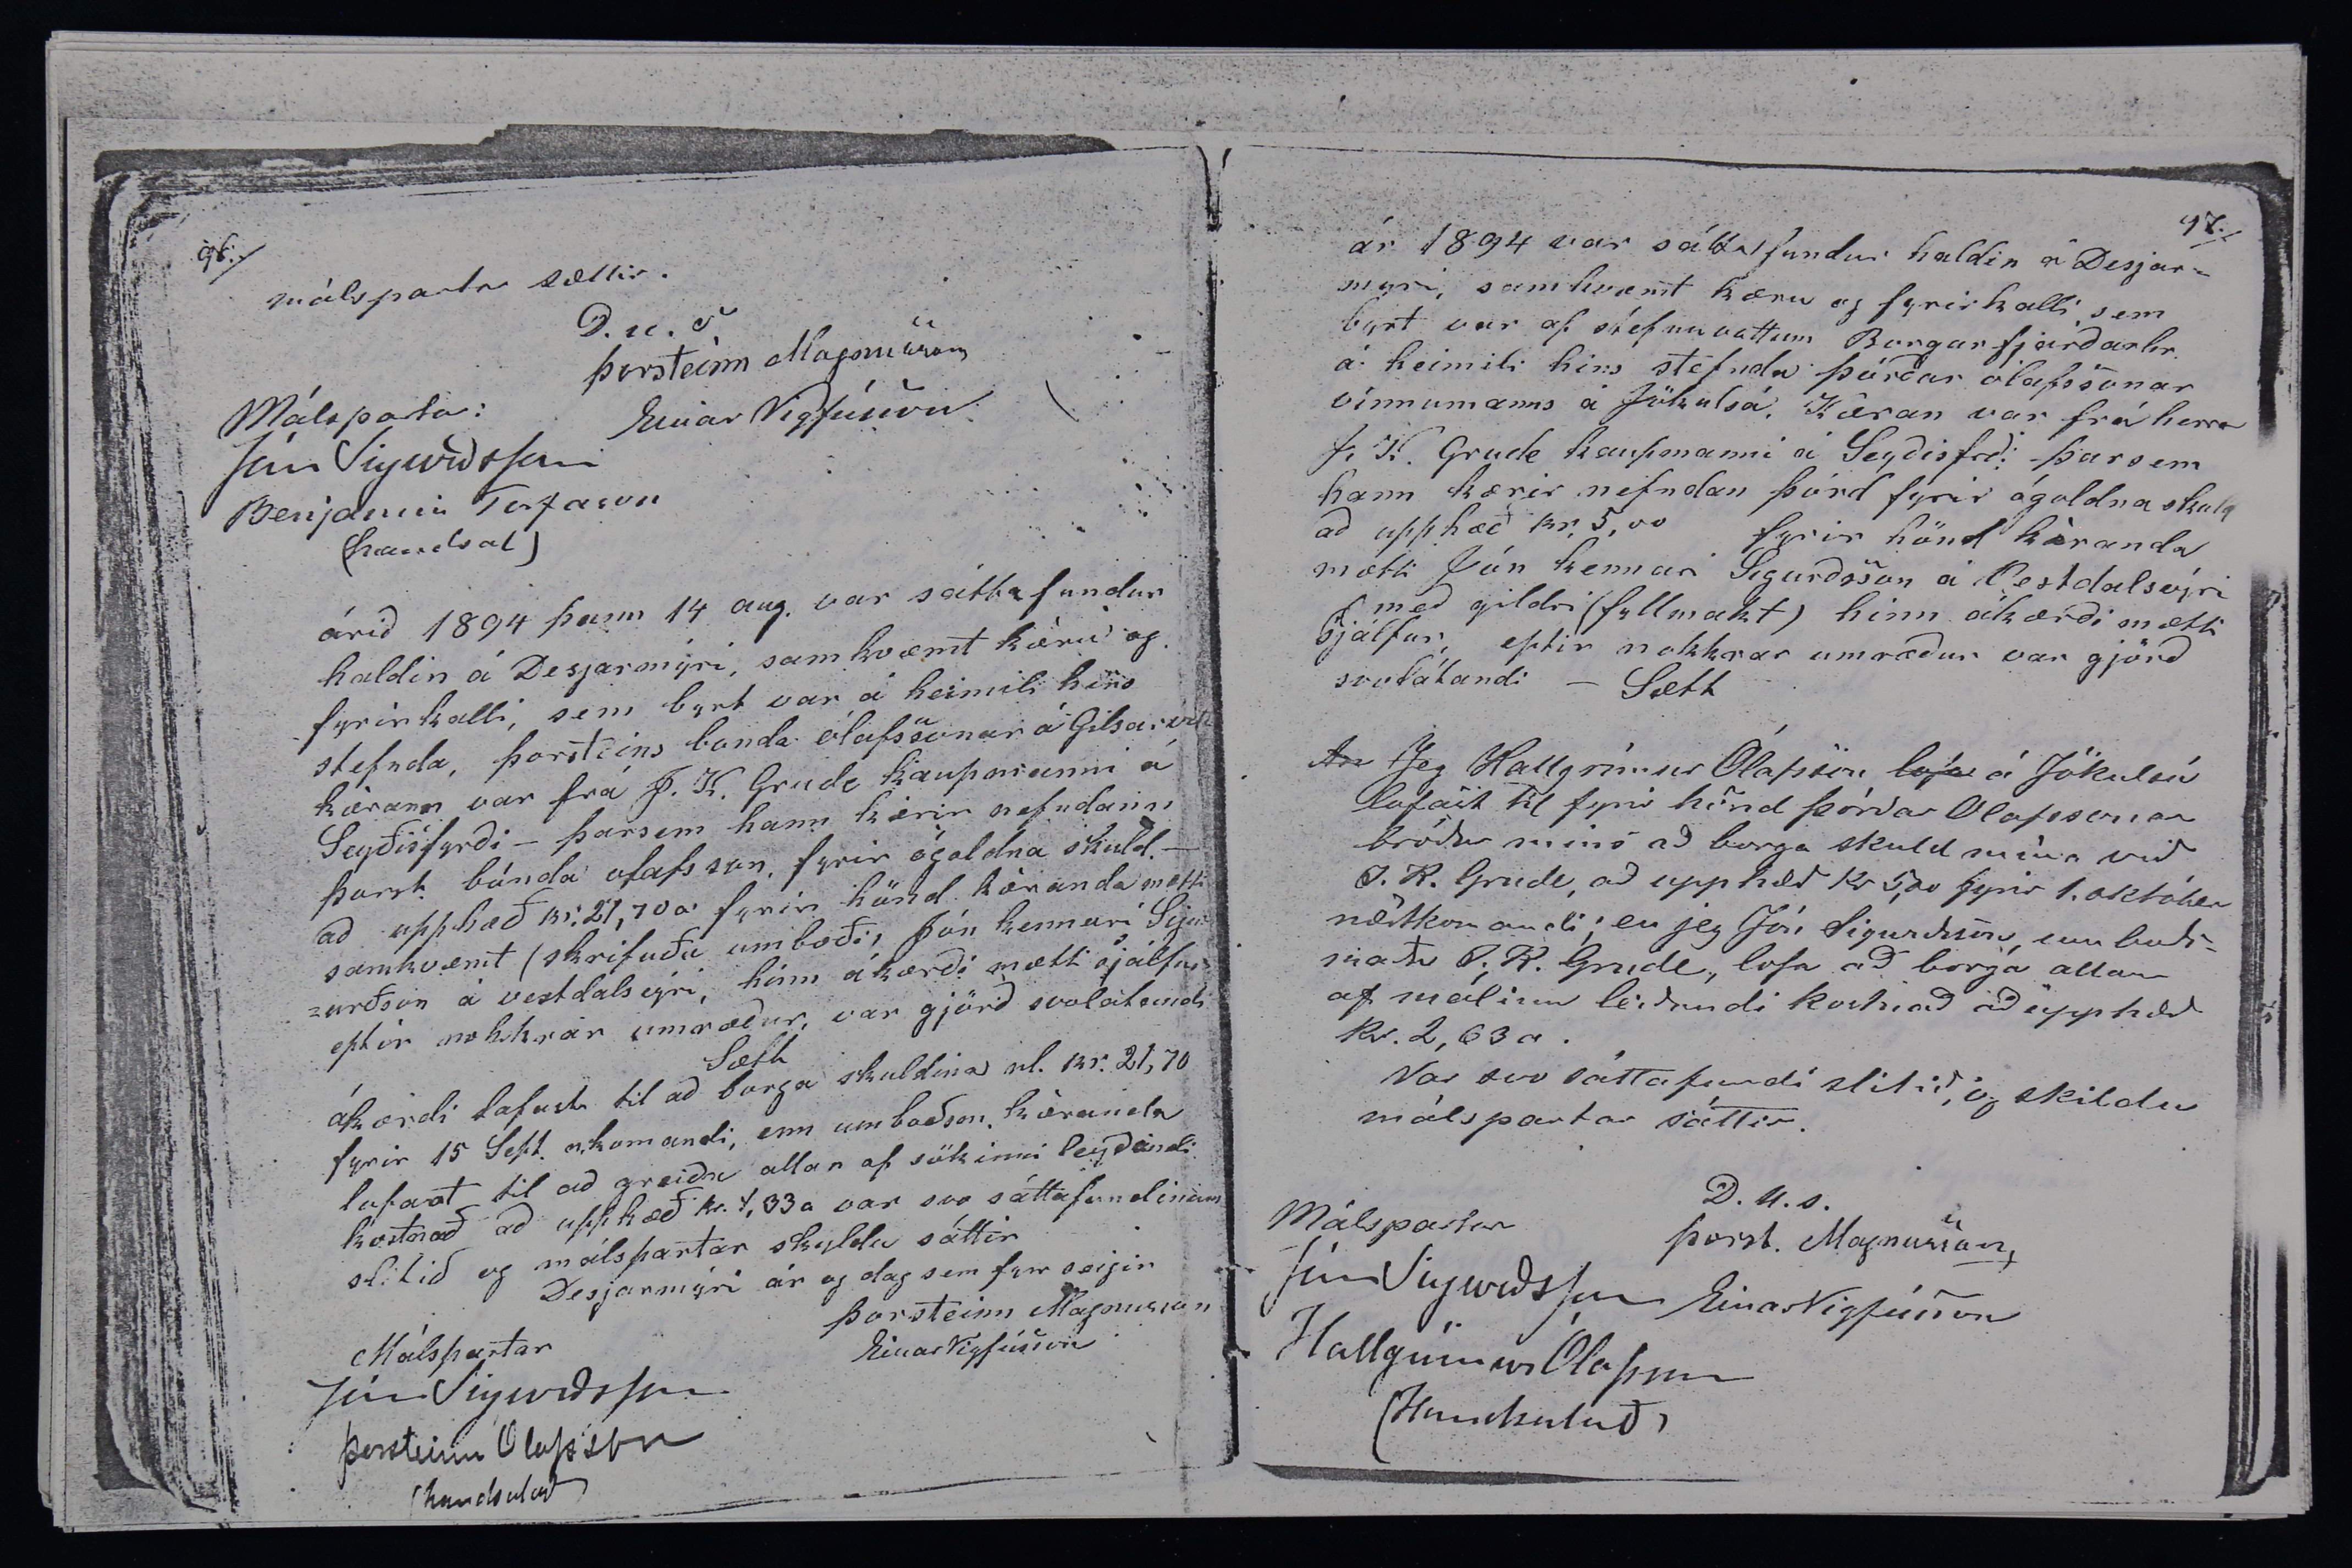 96./
málspartar sættir.
D. u. s.
Þorsteinn Magnússon
Málspartar: Einar Vigfússon
Jón Sigurðsson
Benjamín Torfason
(handsal)
árið 1894 þann 14 aug. var sáttafundur
haldin á Desjarmýri, samkvæmt kæru og
fyrirkalli, sem byrt var á heimili hins
stefnda, þorsteins bonda ólafssonar á Gilsárvelli
kærann var frá J. K. Grude kaupmanni á
Seyðisfyrði – þarsem hann kærir nefndann
þorst. bónda olafsson, fyrir ógoldna skuld. –
að upphæð kr. 21,70 a fyrir hönd kæranda mætti
samkvæmt (skrifuðu umboði, Jón kennari Sigur
=urðson á vestdalseyri, hinn ákærði mætti sjálfur
eptir nokkrar umræður, var gjörð svolátandi
Sætt
ákærdi lofast til að borga skuldina nl. kr. 21,70
fyrir 15 Sept. n.komandi, enn umboðsm. kæranda
lofast til að greiða allan af sökinni leyðandi
kostnað að upphæð kr. 4,33 a var svo sáttafundinum
slitið og málspartar skyldu sáttir
Desjarmýri ár og dag sem fyr seigir
Þorsteinn Magnusson
Málspartar Einar Vigfússon
Jón Sigurðsson
Þorsteinn Olafsson
(handsalað)
97./
ár 1894 var sáttafundur haldin á Desjar=
mýri, samkvæmt kæru og fyrirkalli sem
byrt var af stefnuvottum Borgarfjarðarhr.
á heimili hins stefnda þórðar ólafssonar
vinnumanns á Jökulsá. Kæran var frá herra
J. K. Grude kaupmanni á Seyðisfrði – þarsem
hann kærir nefndan þórd fyrir ógoldna skuld
að upphæð kr. 5,00 fyrir hönd kæranda
mætti Jón kennari Sigurðsson á Vestdalseyri
með gildri (fullmakt) hinn ákærði mætti
sjálfur, eptir nokkrar umræður var gjörð
svolátandi – Sætt
Jeg Hallgrímur Ólafsson lofa á Jökulsá
lofast til fyrir hönd Þórðar Olafssonar
bróður mins að borga skuld mína við
J. K. Grude, að upphæð kr 5,00 fyrir 1. október
næstkomandi; en jeg Jón Sigurðsson, umboðs=
maðr J. K. Grude, lofa að borga allan
af málinu leiðandi kostnað að upphæð
kr. 2,63 a.
Var svo sáttafundi slitið, og skildu
málspartar sáttir.
D. u. s.
Málspartar Þorst. Magnússon,
Jón Sigurðsson Einar Vigfússon
Hallgrímur Ólafsson
(Handsalað)